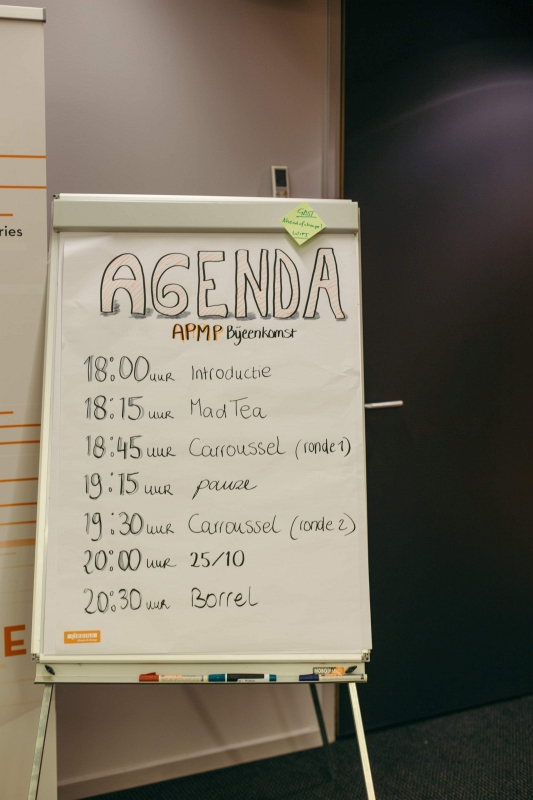 ries
GAST
AGENDA
APMP Bijeenkomst
18:00 uur Introductie
18:15 uur Mad Tea
18:45 uur Carroussel (ronde 1)
19:15 uur pauze
19:30 uur Carroussel (ronde 2)
20:00 uur 25/10
20:30 uur Borrel
E